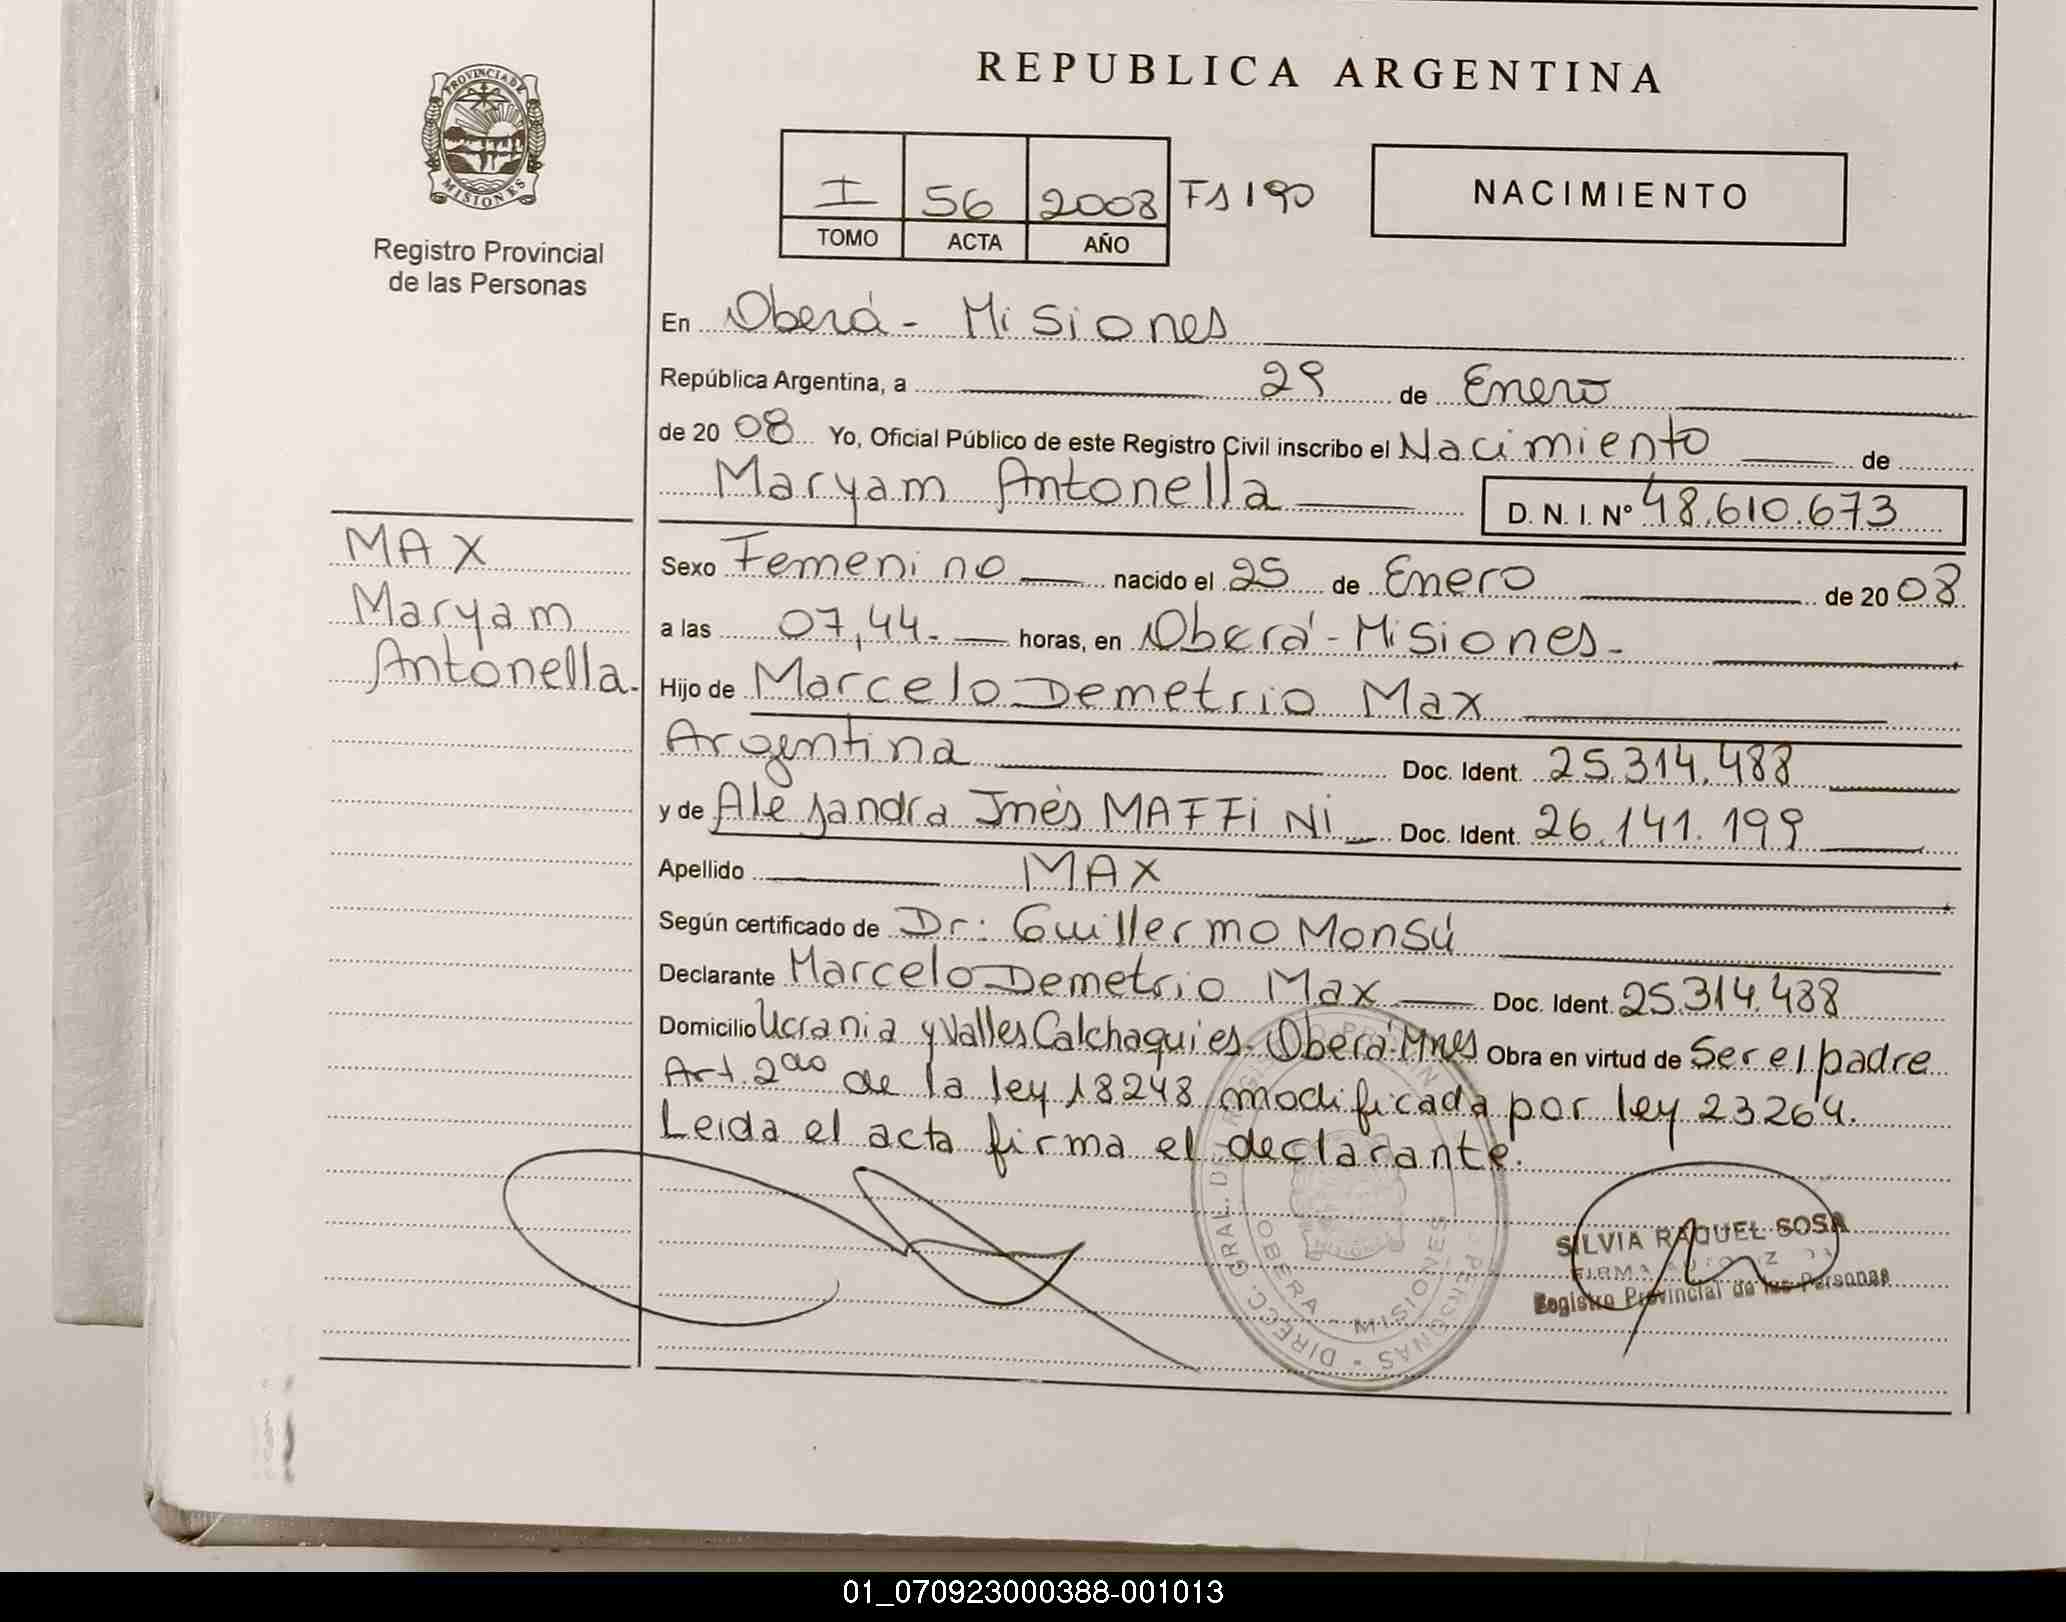 REPUBLICA ARGENTINA
PROVINCIA DE MISIONES
Registro Provincial
de las Personas
I 56 2008 FS 190
TOMO ACTA AÑO
NACIMIENTO
En Oberá - Misiones
República Argentina, a 29 de Enero
de 20 08 Yo, Oficial Público de este Registro Civil inscribo el Nacimiento de
Maryam Antonella D. N. I. Nº 48.610.673
MAX
Maryam
Antonella.
Sexo Femenino nacido el 25 de Enero de 20 08
a las 07,44. horas, en Oberá - Misiones.
Hijo de Marcelo Demetrio Max
Argentina Doc. Ident. 25.314.488
y de Alejandra Inés MAFFiNi Doc. Ident. 26.141.199
Apellido MAX
Según certificado de Dr: Guillermo Monsú
Declarante Marcelo Demetrio Max Doc. Ident. 25.314.488
Domicilio Ucrania y Valles Calchaquies. Oberá-Mnes Obra en virtud de Ser el padre
Art. 2do de la ley 18248 modificada por ley 23264.
Leida el acta firma el declarante.
SILVIA RAQUEL SOSA
FIRMA
Registro Provincial de las Personas
DIRECC. GRAL. DEL REGISTRO PROVINCIAL PERSONAS
OBERA - MISIONES
01_070923000388-001013